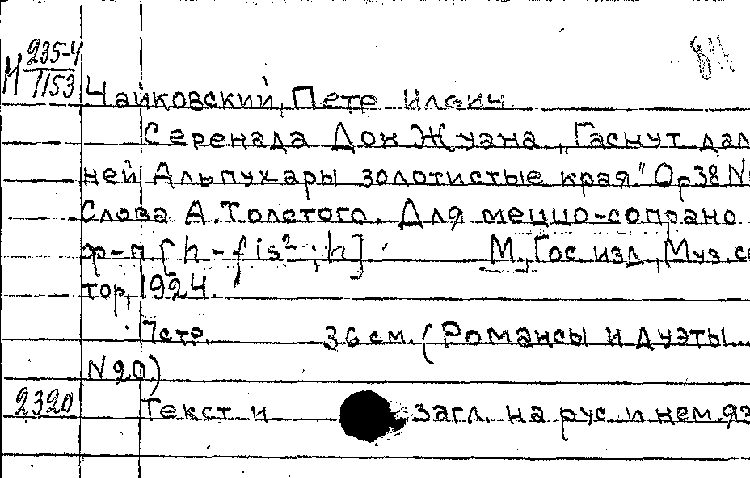 М 235-4
1153
84
Чайковский, Петр Ильич
Серенада Дон Жуана „Гаснут даль
ней Альпухары золотистые края" Op 38 N
Слова А. Толстого. Для меццо-сопрано
ф-п [h - fis² ; h] М., Гос. изд., Муз. се
тор, 1924.
7 стр. 36 см. (Романсы и дуэты
N 20.)
2320 Текст и загл. на рус. и нем. яз